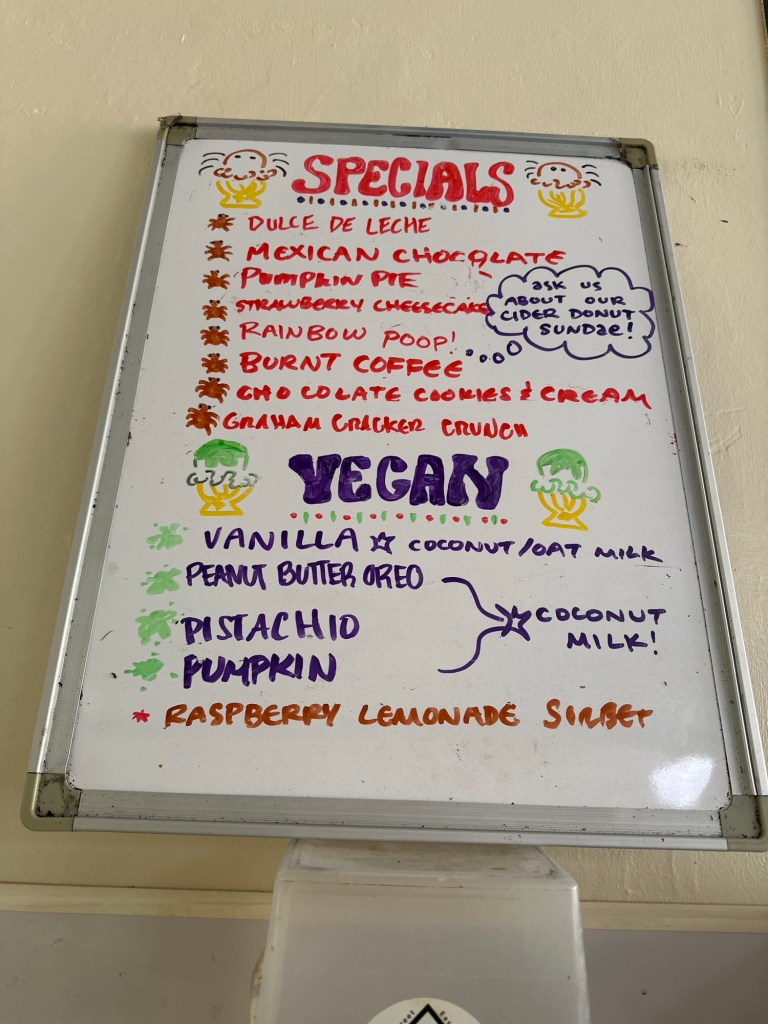 SPECIALS
DULCE DE LECHE
MEXICAN CHOCOLATE
PUMPKIN PIE
STRAWBERRY CHEESECAKE
RAINBOW POOP!
BURNT COFFEE
CHOCOLATE COOKIES & CREAM
GRAHAM CRACKER CRUNCH
ask us
ABOUT OUR
CIDER DONUT
SUNDae!
VEGAN
VANILLA ☆ COCONUT/OAT MILK
PEANUT BUTTER OREO
PISTACHIO
PUMPKIN
☆ COCONUT
MILK!
* RASPBERRY LEMONADE SORBET